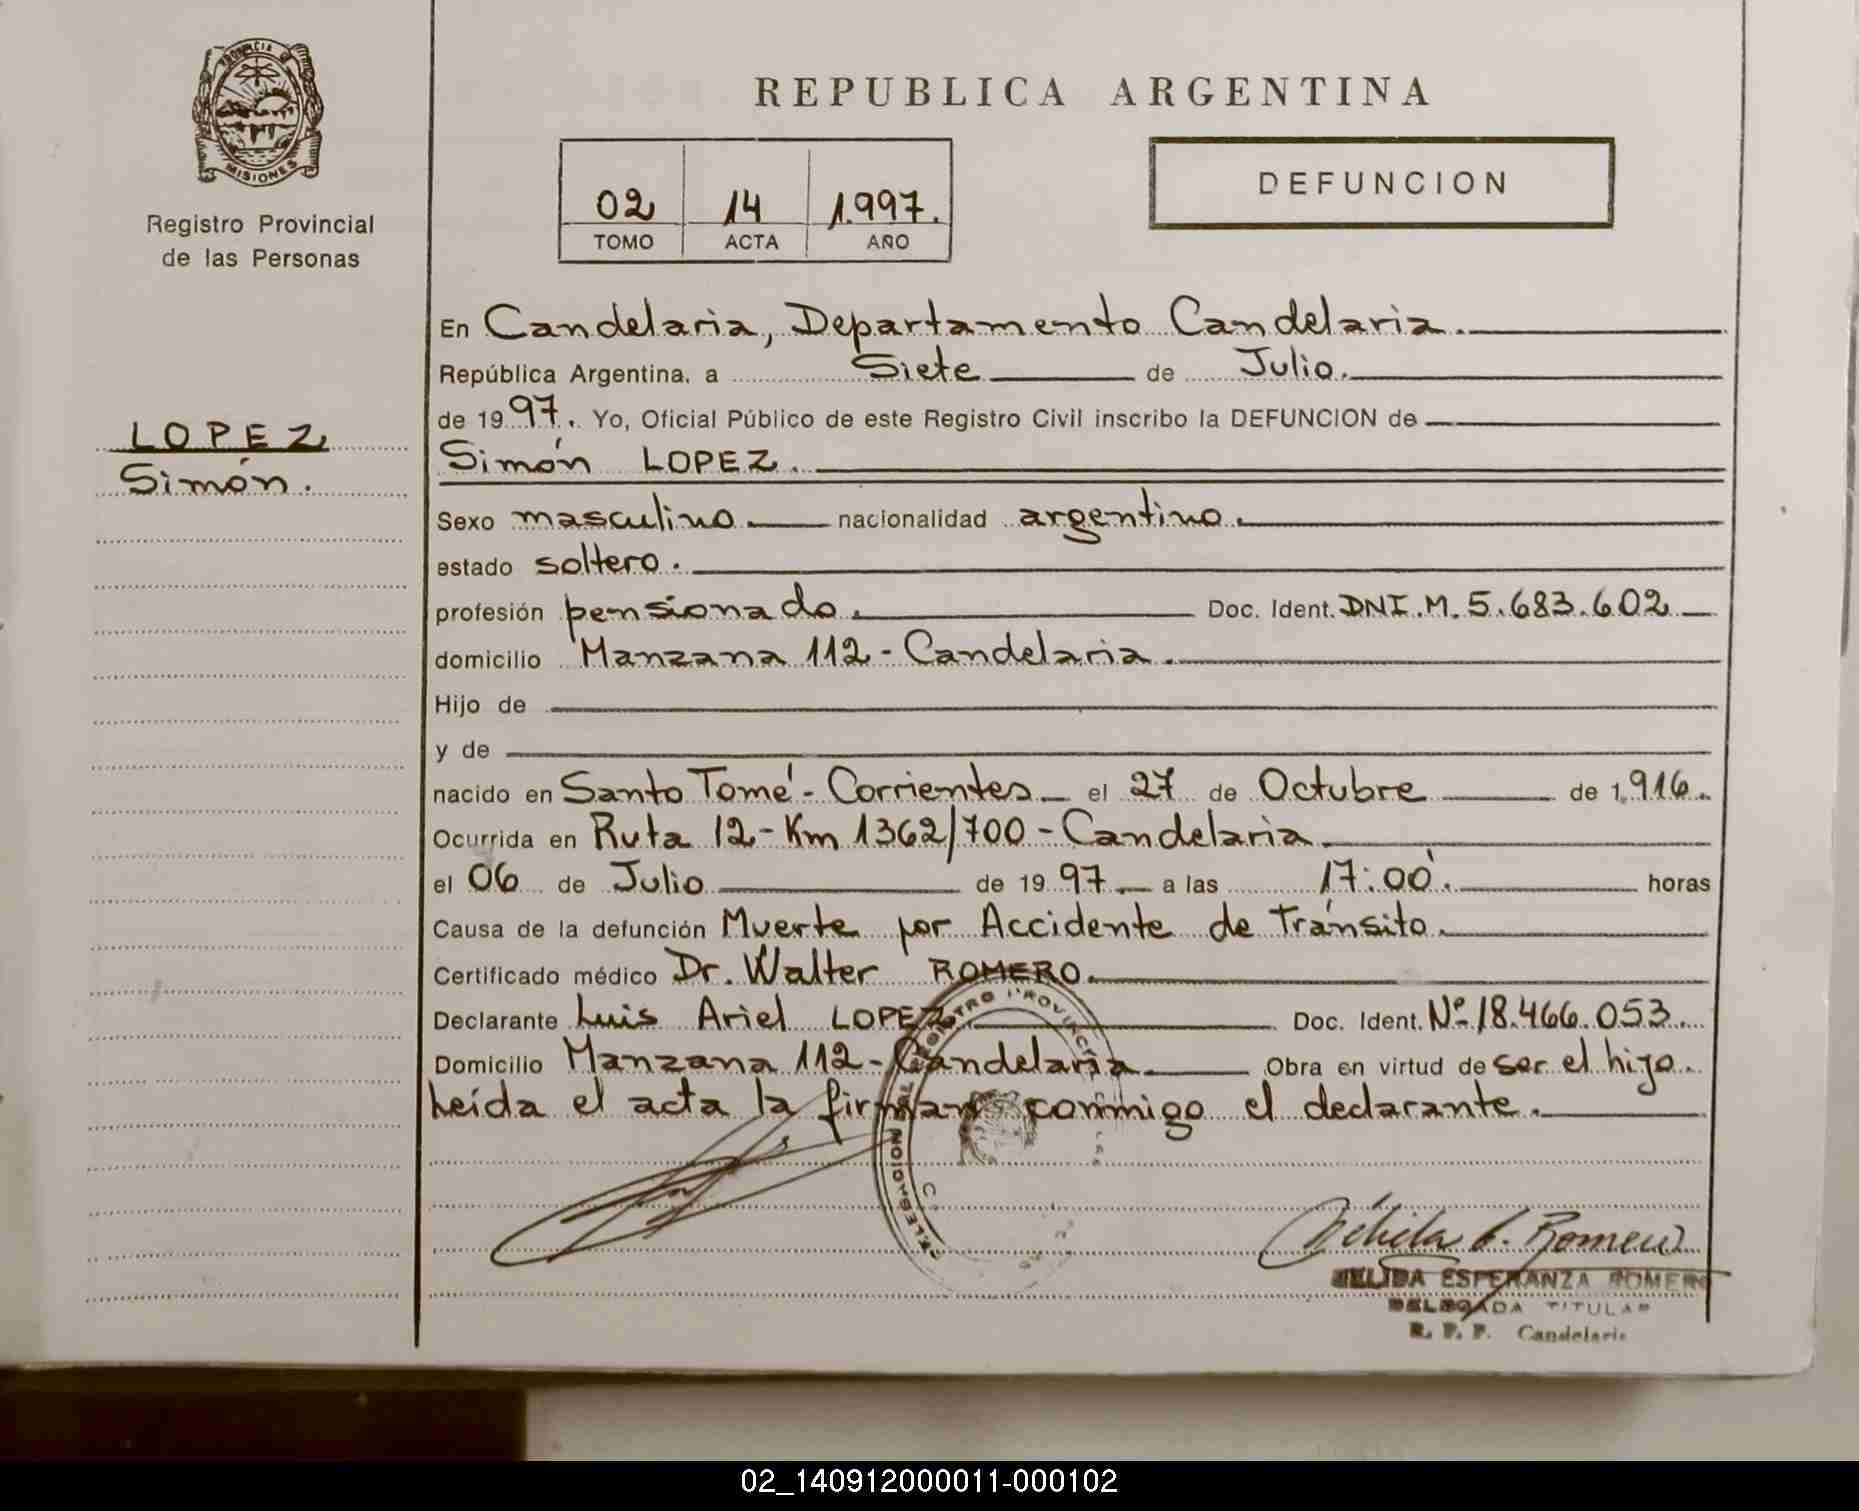 PROVINCIA DE
MISIONES
Registro Provincial
de las Personas
LOPEZ
Simón.
REPUBLICA ARGENTINA
02 14 1.997.
TOMO ACTA AÑO
DEFUNCION
En Candelaria, Departamento Candelaria.
República Argentina, a Siete de Julio.
de 1997. Yo, Oficial Público de este Registro Civil inscribo la DEFUNCION de
Simón LOPEZ.
Sexo masculino nacionalidad argentino.
estado soltero.
profesión pensionado. Doc. Ident. DNI.M. 5.683.602
domicilio Manzana 112 - Candelaria.
Hijo de
y de
nacido en Santo Tomé - Corrientes el 27 de Octubre de 1.916.
Ocurrida en Ruta 12 - Km 1362/700 - Candelaria
el 06 de Julio de 1997 a las 17:00. horas
Causa de la defunción Muerte por Accidente de Tránsito.
Certificado médico Dr. Walter ROMERO.
Declarante Luis Ariel LOPEZ Doc. Ident. Nº 18.466.053.
Domicilio Manzana 112 - Candelaria Obra en virtud de ser el hijo.
Leída el acta la firman conmigo el declarante.
REGISTRO PROVINCIAL
Nélida E. Romero
NELIDA ESPERANZA ROMERO
DELEGADA TITULAR
R. P. P. Candelaria
02_140912000011-000102